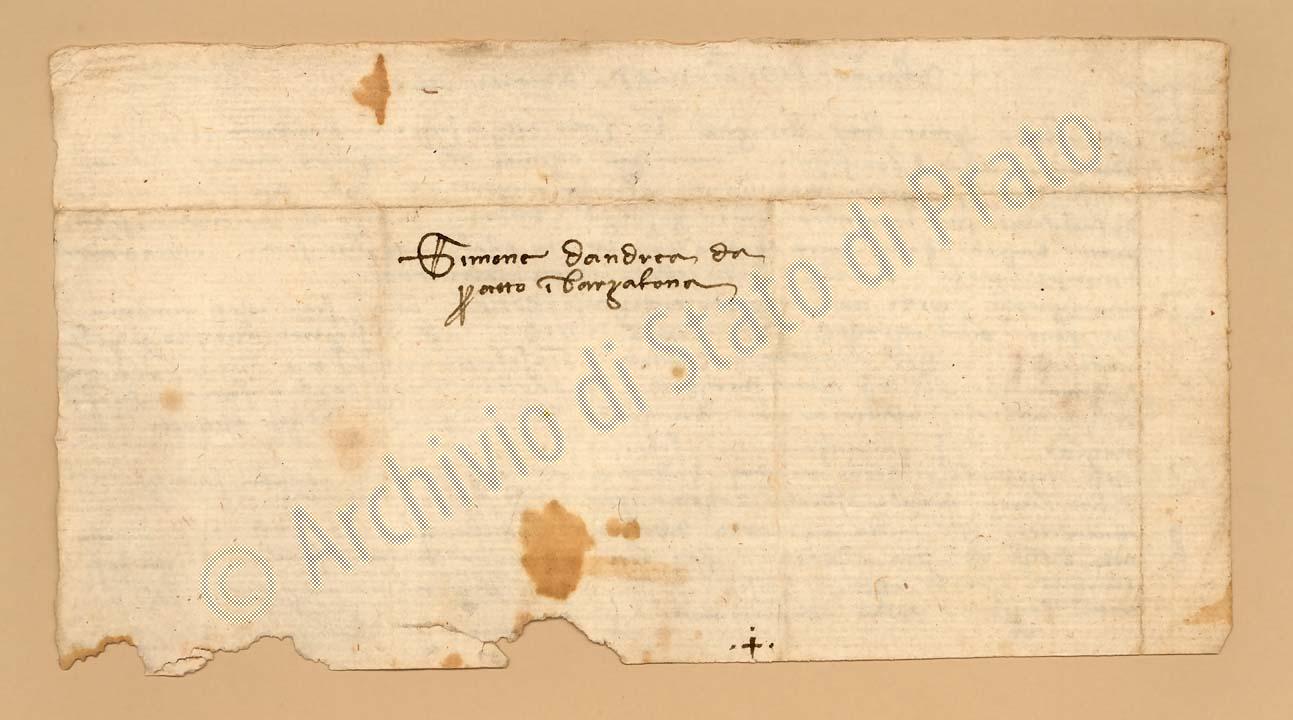 Simone dandrea da
prato ĩ barzalona
© Archivio di Stato di Prato